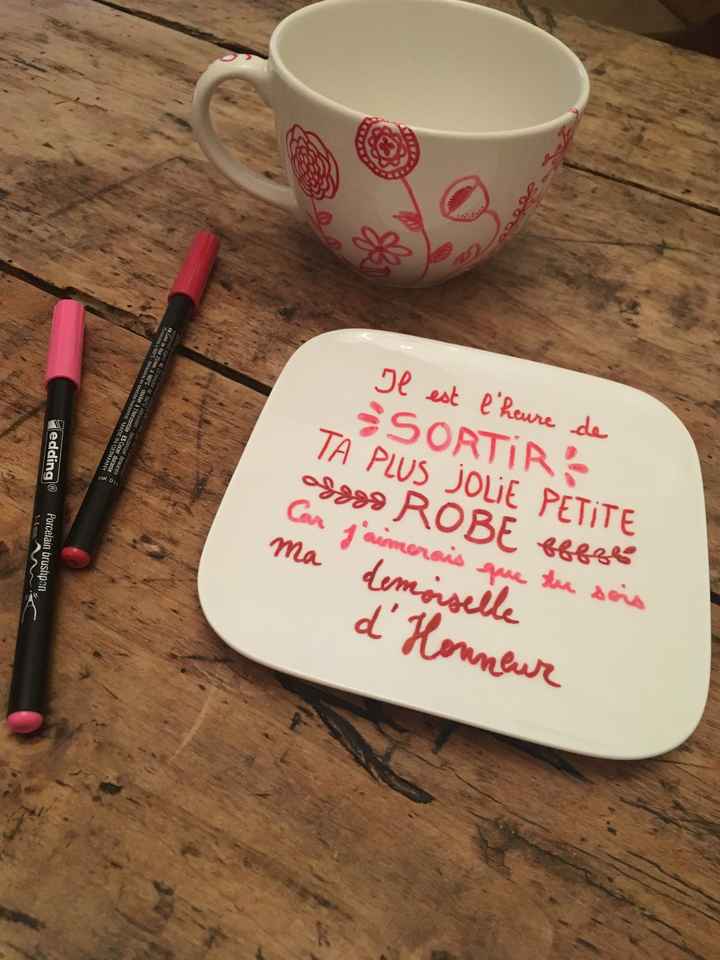 Il est l'heure de
SORTIR
TA PLUS JOLIE PETITE
ROBE
Car j'aimerais que tu sois
ma demoiselle
d'Honneur
edding
Porcelain brushpen